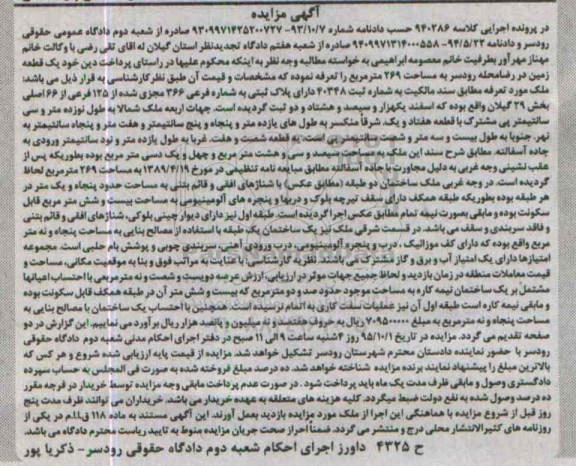 آگهی مزایده
در پرونده اجرایی کلاسه ۹۴۰۳۸۶ حسب دادنامه شماره ۹۳/۱۰/۷- ۹۳۰۹۹۷۱۴۲۵۲۰۰۷۲۷ صادره از شعبه دوم دادگاه عمومی حقوقی
رودسر و دادنامه ۹۴/۵/۲۲- ۹۴۰۹۹۷۱۳۱۴۰۰۰۵۵۸ صادره از شعبه هفتم دادگاه تجدیدنظر استان گیلان له آقای تقی رضی با وکالت خانم
مهناز مهرآور بطرفیت خانم معصومه ابراهیمی به خواسته مطالبه وجه نظر به اینکه محکوم علیها در راستای پرداخت دین خود یک قطعه
زمین در رضامحله رودسر به مساحت ۲۶۹ مترمربع را تعرفه نموده که مشخصات و قیمت آن طبق نظر کارشناسی به قرار ذیل می باشد:
ملک مورد تعرفه مطابق سند مالکیت به شماره ثبت ۴۰۳۴۸ دارای پلاک ثبتی به شماره فرعی ۳۶۶ مجزی شده از ۱۲۵ فرعی از ۶۶ اصلی
بخش ۲۹ گیلان واقع بوده که اسفند یکهزار و سیصد و هشتاد و دو ثبت گردیده است. جهات اربعه ملک شمالا به طول نوزده متر و سی
سانتیمتر پی مشترک با قطعه هفتاد و یک. شرقاً منکسر به طول های یازده متر و پنجاه و پنج سانتیمتر و هفت متر و پنجاه سانتیمتر به
نهر. جنوبا به طول بیست و سه متر و شصت سانتیمتر پی است به قطعه شصت و هفت. غربا به طول یازده متر و نود سانتیمتر ورودی به
جاده آسفالته. مطابق شرح سند این ملک به مساحت سیصد و سی و هشت متر مربع و چهل و یک دسی متر مربع بوده بطوریکه پس از
عقب نشینی وجه غربی به دلیل مجاورت با جاده آسفالته مطابق مبایعه نامه تنظیمی در مورخ ۱۳۸۹/۴/۱۹ به مساحت ۲۶۹ مترمربع لحاظ
گردیده است. در وجه غربی ملک ساختمان دو طبقه (مطابق عکس) با شناژهای افقی و قائم بتنی به مساحت حدود پنجاه و یک متر در
هر طبقه بوده بطوریکه طبقه همکف دارای سقف تیرچه بلوک و دربها و پنجره های آلومینیومی به مساحت بیست و شش متر مربع قابل
سکونت بوده و مابقی بصورت نیمه تمام مطابق عکس اجرا گردیده است. طبقه اول نیز دارای دیوار چینی بلوکی، شناژهای افقی و قائم بتنی
و فاقد سربندی و سقف می باشد. در قسمت شرقی ملک نیز یک ساختمان یک طبقه با استفاده از مصالح بنایی به مساحت پنجاه و نه متر
مربع واقع بوده که دارای کف موزائیک ، درب و پنجره آلومینیومی، درب ورودی آهنی، سربندی چوبی و پوشش بام حلبی است. مجموعه
امتیازها دارای یک امتیاز آب و برق و گاز مشترک می باشند. نظریه کارشناسی: با عنایت به مراتب فوق و بنا به موقعیت مکانی، مساحت و
قیمت معاملات منطقه در زمان بازدید و لحاظ جمیع جهات موثر در ارزیابی، ارزش عرصه دویست و شصت و نه مترمربعی با احتساب اعیانها
مشتمل بر یک ساختمان نیمه کاره به مساحت موجود حدود صد و دو مترمربع که بیست و شش متر آن در طبقه همکف قابل سکونت بوده
و مابقی نیمه کاره است طبقه اول آن نیز عملیات سفت کاری به اتمام نرسیده است. همچنین با احتساب یک ساختمان با مصالح بنایی به
مساحت پنجاه و نه مترمربع به مبلغ ۷۰۹۵۰۰۰۰۰ ریال به حروف هفتصد و نه میلیون و پانصد هزار ریال برآورد می نماییم. این گزارش در دو
صفحه تقدیم می گردد. مزایده در تاریخ ۹۵/۱۰/۱ روز ۴شنبه ساعت ۹ الی ۱۱ صبح در دفتر اجرای احکام مدنی شعبه دوم دادگاه حقوقی
رودسر با حضور نماینده دادستان محترم شهرستان رودسر تشکیل خواهد شد. مزایده از قیمت پایه ارزیابی شده شروع و هر کس که
بالاترین مبلغ را پیشنهاد نمایند برنده مزایده شناخته خواهد شد. ده درصد مبلغ فروخته شده به صورت فی المجلس به حساب سپرده
دادگستری وصول و مابقی ظرف مدت یک ماه باید پرداخت شود . در صورت عدم پرداخت مابقی وجه مزایده توسط خریدار در فرجه مقرر
ده درصد وصول شده به نفع دولت ضبط میگردد. کلیه هزینه های متعلقه به عهده خریدار می باشد. خریداران می توانند ظرف مدت پنج
روز قبل از شروع مزایده با هماهنگی این اجرا از ملک مورد مزایده بازدید بعمل آورند. این آگهی مستند به ماده ۱۱۸ ق.ا.م در یکی از
روزنامه های کثیرالانتشار محلی درج و منتشر می گردد. ضمناً احراز صحت جریان مزایده منوط به تایید ریاست محترم دادگاه می باشد.
ح ۴۳۲۵ دادورز اجرای احکام شعبه دوم دادگاه حقوقی رودسر- ذکریا پور